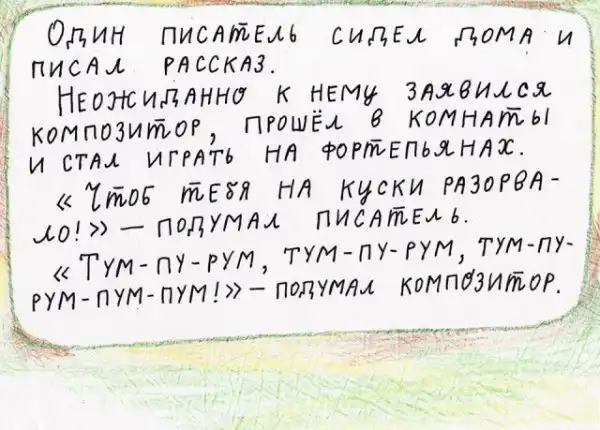 Один писатель сидел дома и
писал рассказ.
Неожиданно к нему заявился
композитор, прошёл в комнаты
и стал играть на фортепьянах.
«Чтоб тебя на куски разорва-
ло!» — подумал писатель.
«Тум-пу-рум, тум-пу-рум, тум-пу-
рум-пум-пум!» — подумал композитор.